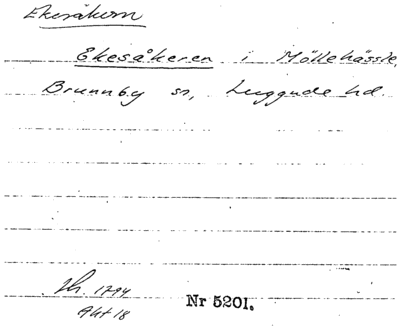 Ekesåkern
Ekesåkeren i Möllehässle,
Brunnby sn, Luggude hd.
Lh. 1794
Akt 18
Nr 5201.